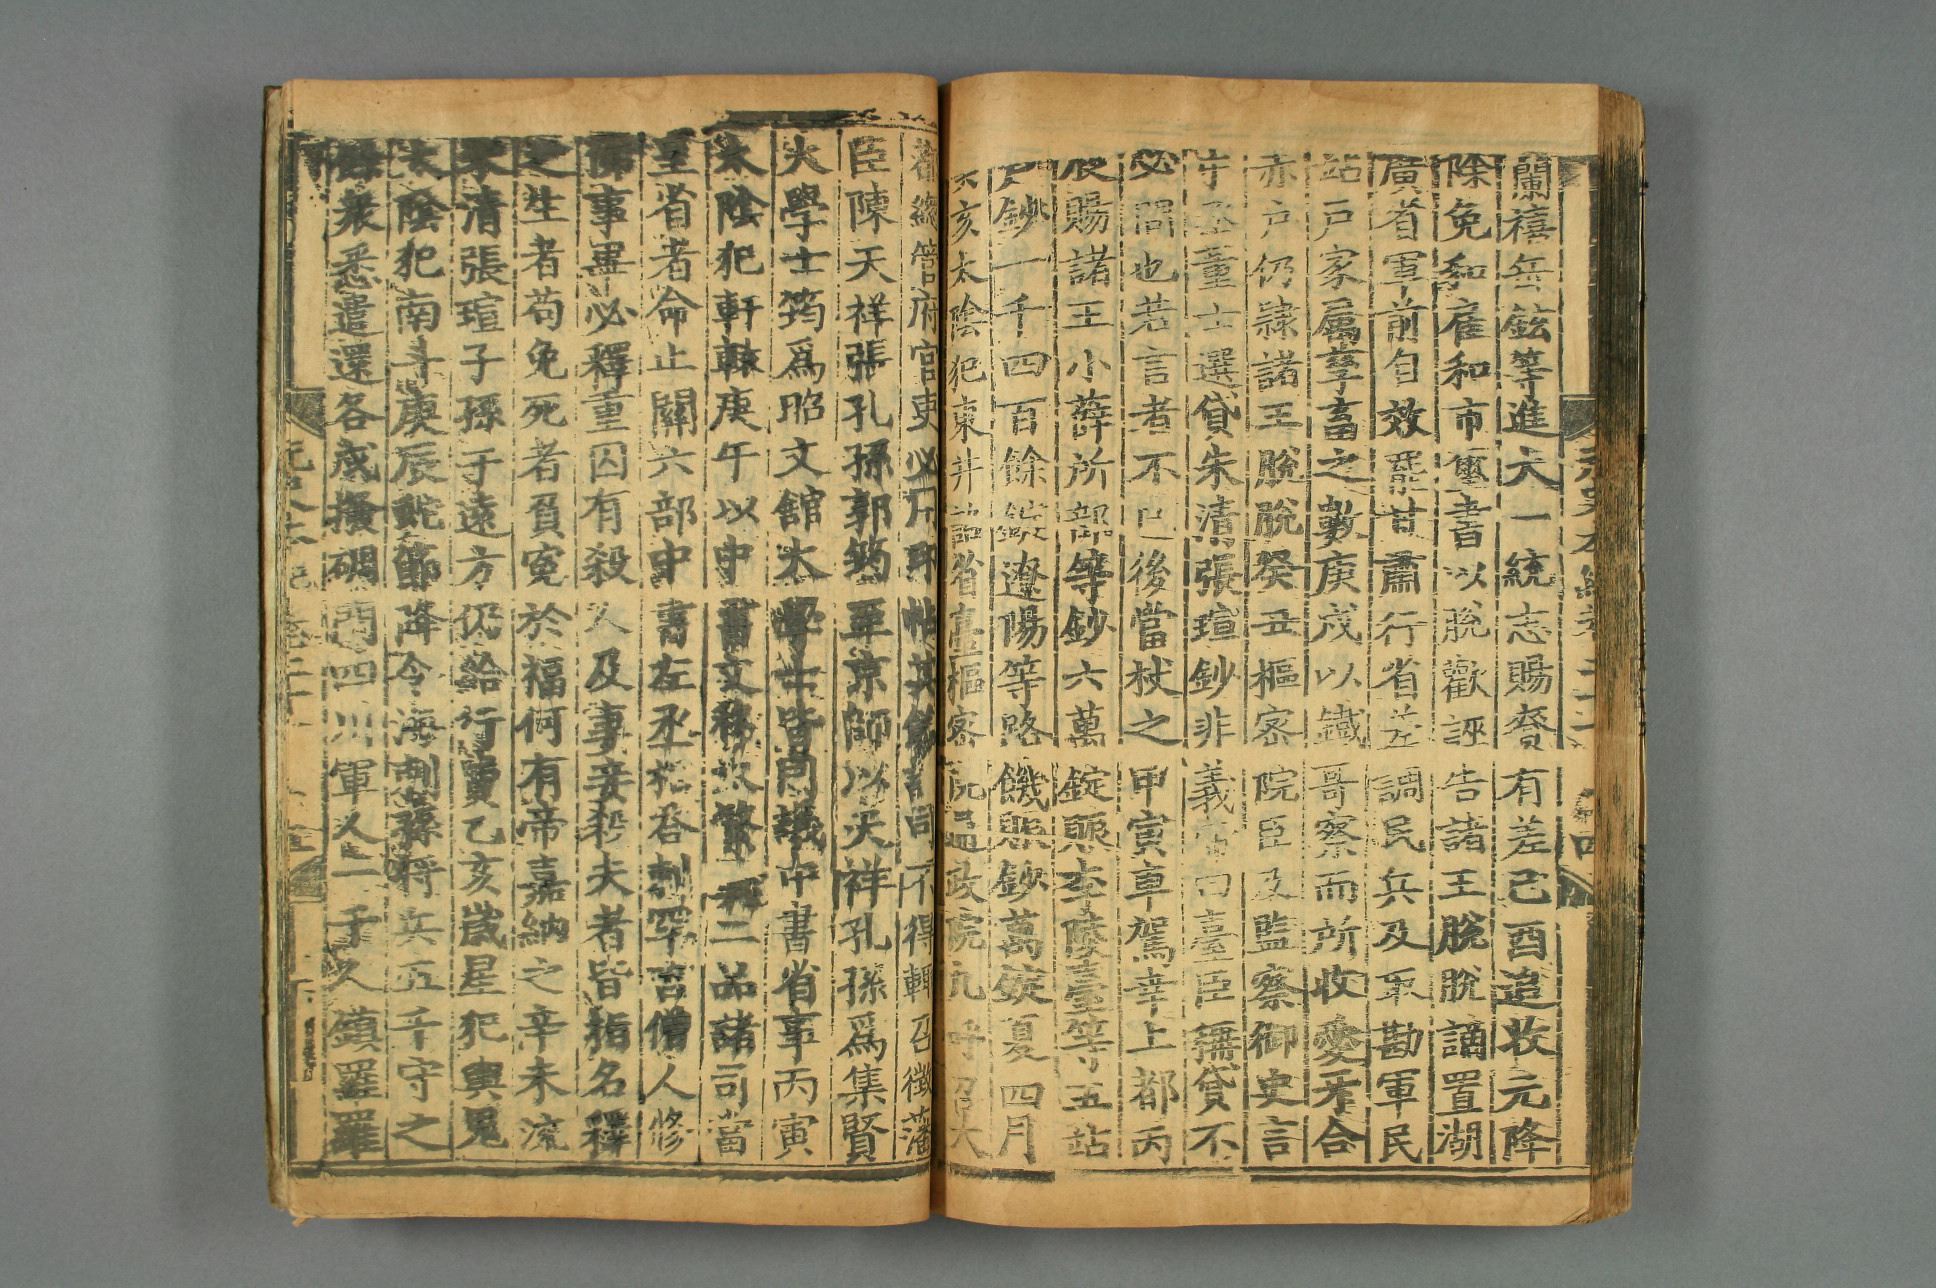 蘭禧岳鉉等進大一統志賜賚有差己酉追收元降
除免和雇和市璽書以脫歡誣告諸王脫脫謫置湖
廣省軍前自效罷甘肅行省差調民兵及取勘軍民
站戶家屬孳畜之數庚戌以鐵哥察而所收愛牙合
赤戶仍隷諸王脫脫癸丑樞密院臣及監察御史言
中丞董士選貸朱清張瑄鈔非義帝曰臺臣稱貸不
必問也若言者不已後當杖之甲寅車駕幸上都丙
辰賜諸王小薛所部等鈔六萬錠
戶鈔一千四百餘錠遼陽等路饑賑鈔萬錠夏四月
丁亥太陰犯東井詔省臺樞密院
都總管府官吏必用
不得輒召徵藩
臣陳天祥張孔孫郭筠至京師以天祥孔孫爲集賢
大學士筠爲昭文館大學士皆同議中書省事丙寅
太陰犯軒轅庚午以中書文移太繁其二品諸司當
呈省者命止關六部中書左丞相荅剌罕言僧人修
佛事畢必釋重囚有殺人及妻妾殺夫者皆指名釋
之生者苟免死者負寃於福何有帝嘉納之辛未流
朱清張瑄子孫于遠方仍給行費乙亥歲星犯輿鬼
太陰犯南斗庚辰
將兵五千守之
餘衆悉遣還各戍撥碉門四川軍人一千人鎮羅羅